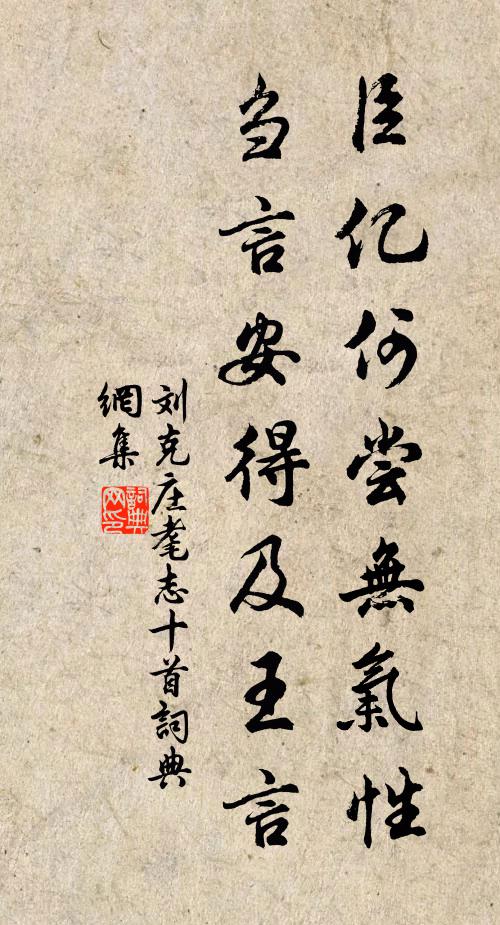 臣亿何尝無氣性
刍言安得及王言
刘克庄耄志十首詞典
網集
詞典网印